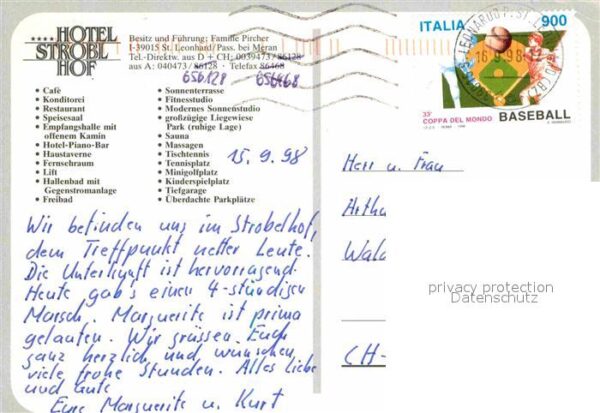 HOTEL
****STROBL
HOF
Besitz und Führung: Familie Pircher
I-39015 St. Leonhard/Pass. bei Meran
Tel.-Direktw. aus D + CH: 0039473/86128
aus A: 040473/86128 · Telefax 86468
656128 656468
• Café
• Konditorei
• Restaurant
• Speisesaal
• Empfangshalle mit
offenem Kamin
• Hotel-Piano-Bar
• Haustaverne
• Fernsehraum
• Lift
• Hallenbad mit
Gegenstromanlage
• Freibad
• Sonnenterrasse
• Fitnesstudio
• Modernes Sonnenstudio
• großzügige Liegewiese
Park (ruhige Lage)
• Sauna
• Massagen
• Tischtennis
• Tennisplatz
• Minigolfplatz
• Kinderspielplatz
• Tiefgarage
• Überdachte Parkplätze
15.9.98
Wir befinden uns im Strobelhof,
dem Treffpunkt netter Leute.
Die Unterkunft ist hervorragend.
Heute gab's einen 4-stündigen
Marsch. Marguerite ist prima
gelaufen. Wir grüssen Euch
ganz herzlich und wünschen
viele frohe Stunden. Alles Liebe
und Gute
Eure Marguerite u. Kurt
ITALIA 900
16.9.98
33ª
COPPA DEL MONDO BASEBALL
Herr u. Frau
Arthu
Wald
CH-
privacy protection
Datenschutz